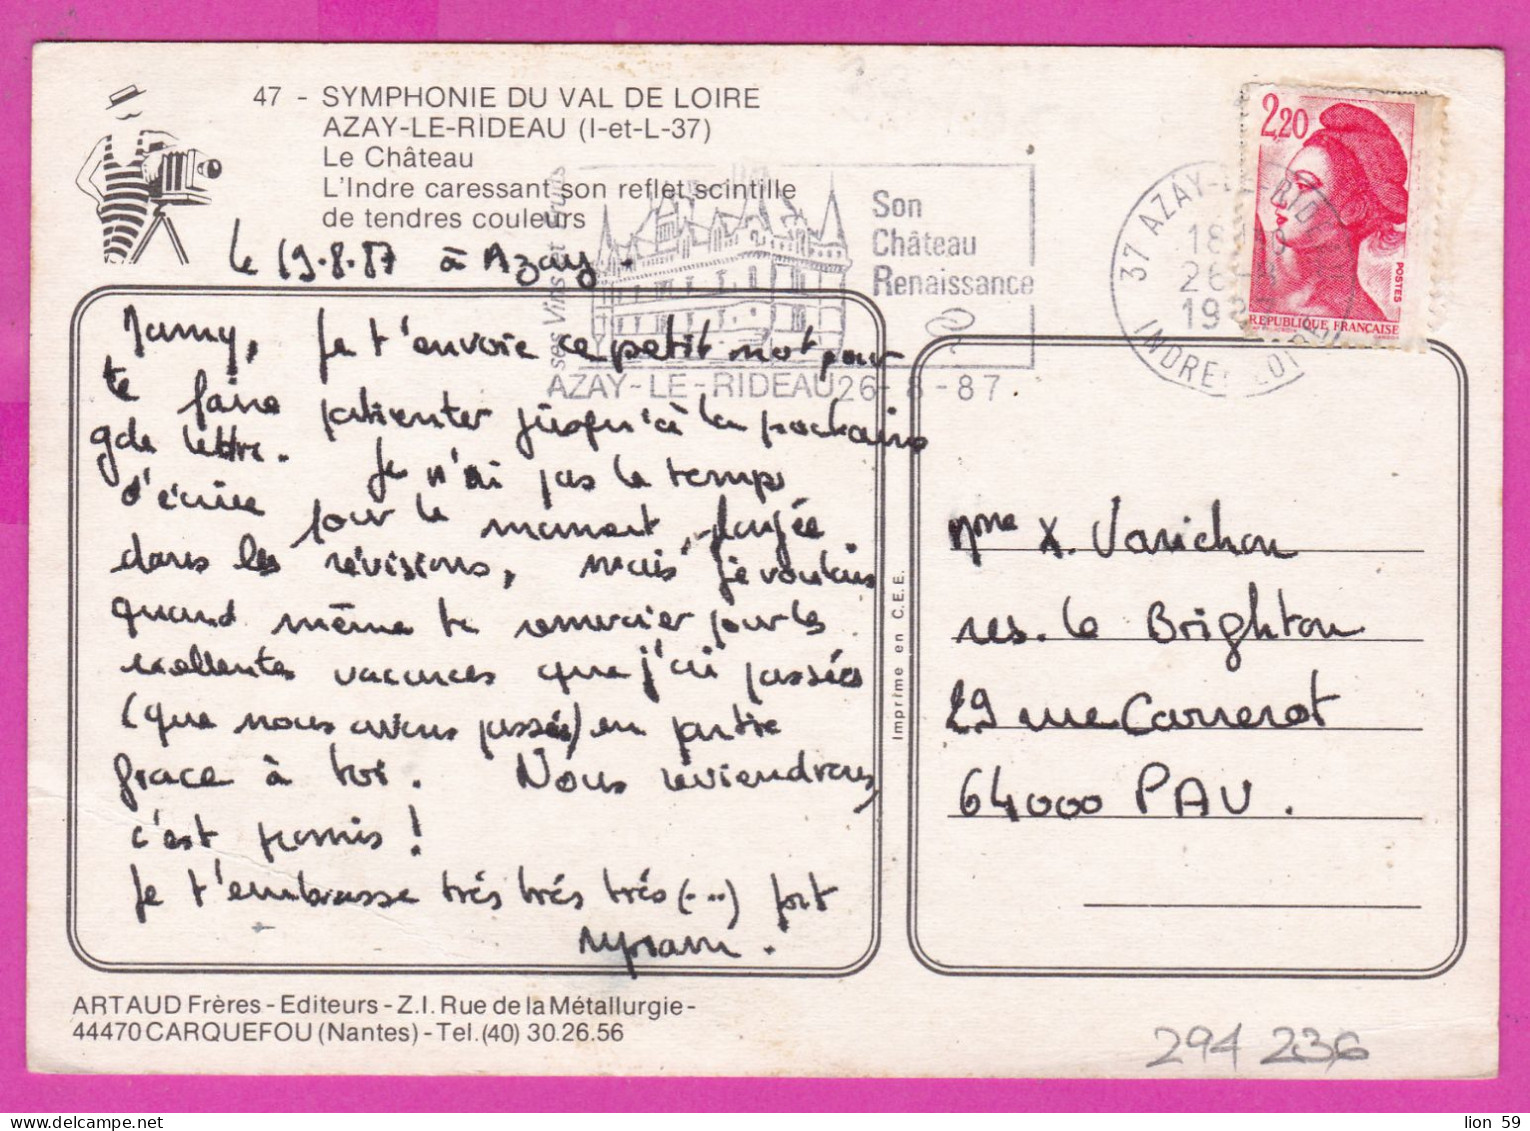 47 - SYMPHONIE DU VAL DE LOIRE
AZAY-LE-RIDEAU (I-et-L-37)
Le Château
L'Indre caressant son reflet scintille
de tendres couleurs
le 19.8.87 à Azay.
Jamy, Je t'envoie ce petit mot pour
te faire patienter jusqu'à la prochaine
gde lettre. Je n'ai pas le temps
d'écrire pour le moment, plongée
dans les révisions, mais je voulais
quand même te remercier pour les
excellentes vacances que j'ai passées
(que nous avons passées) en partie
grace à toi. Nous reviendrons,
c'est promis !
Je t'embrasse très très très (...) fort
Myriam.
ses Vins et Fruits
Son
Château
Renaissance
AZAY-LE-RIDEAU 26-8-87
37 AZAY-LE-RIDEAU
18H
26-8
1987
INDRE-ET-LOIRE
2,20
POSTES
REPUBLIQUE FRANCAISE
Mme X. Varichon
res. le Brighton
29 rue Carrerot
64000 PAU.
Imprimé en C.E.E.
ARTAUD Frères - Editeurs - Z.I. Rue de la Métallurgie -
44470 CARQUEFOU (Nantes) - Tel. (40) 30.26.56
294 236
lion 59